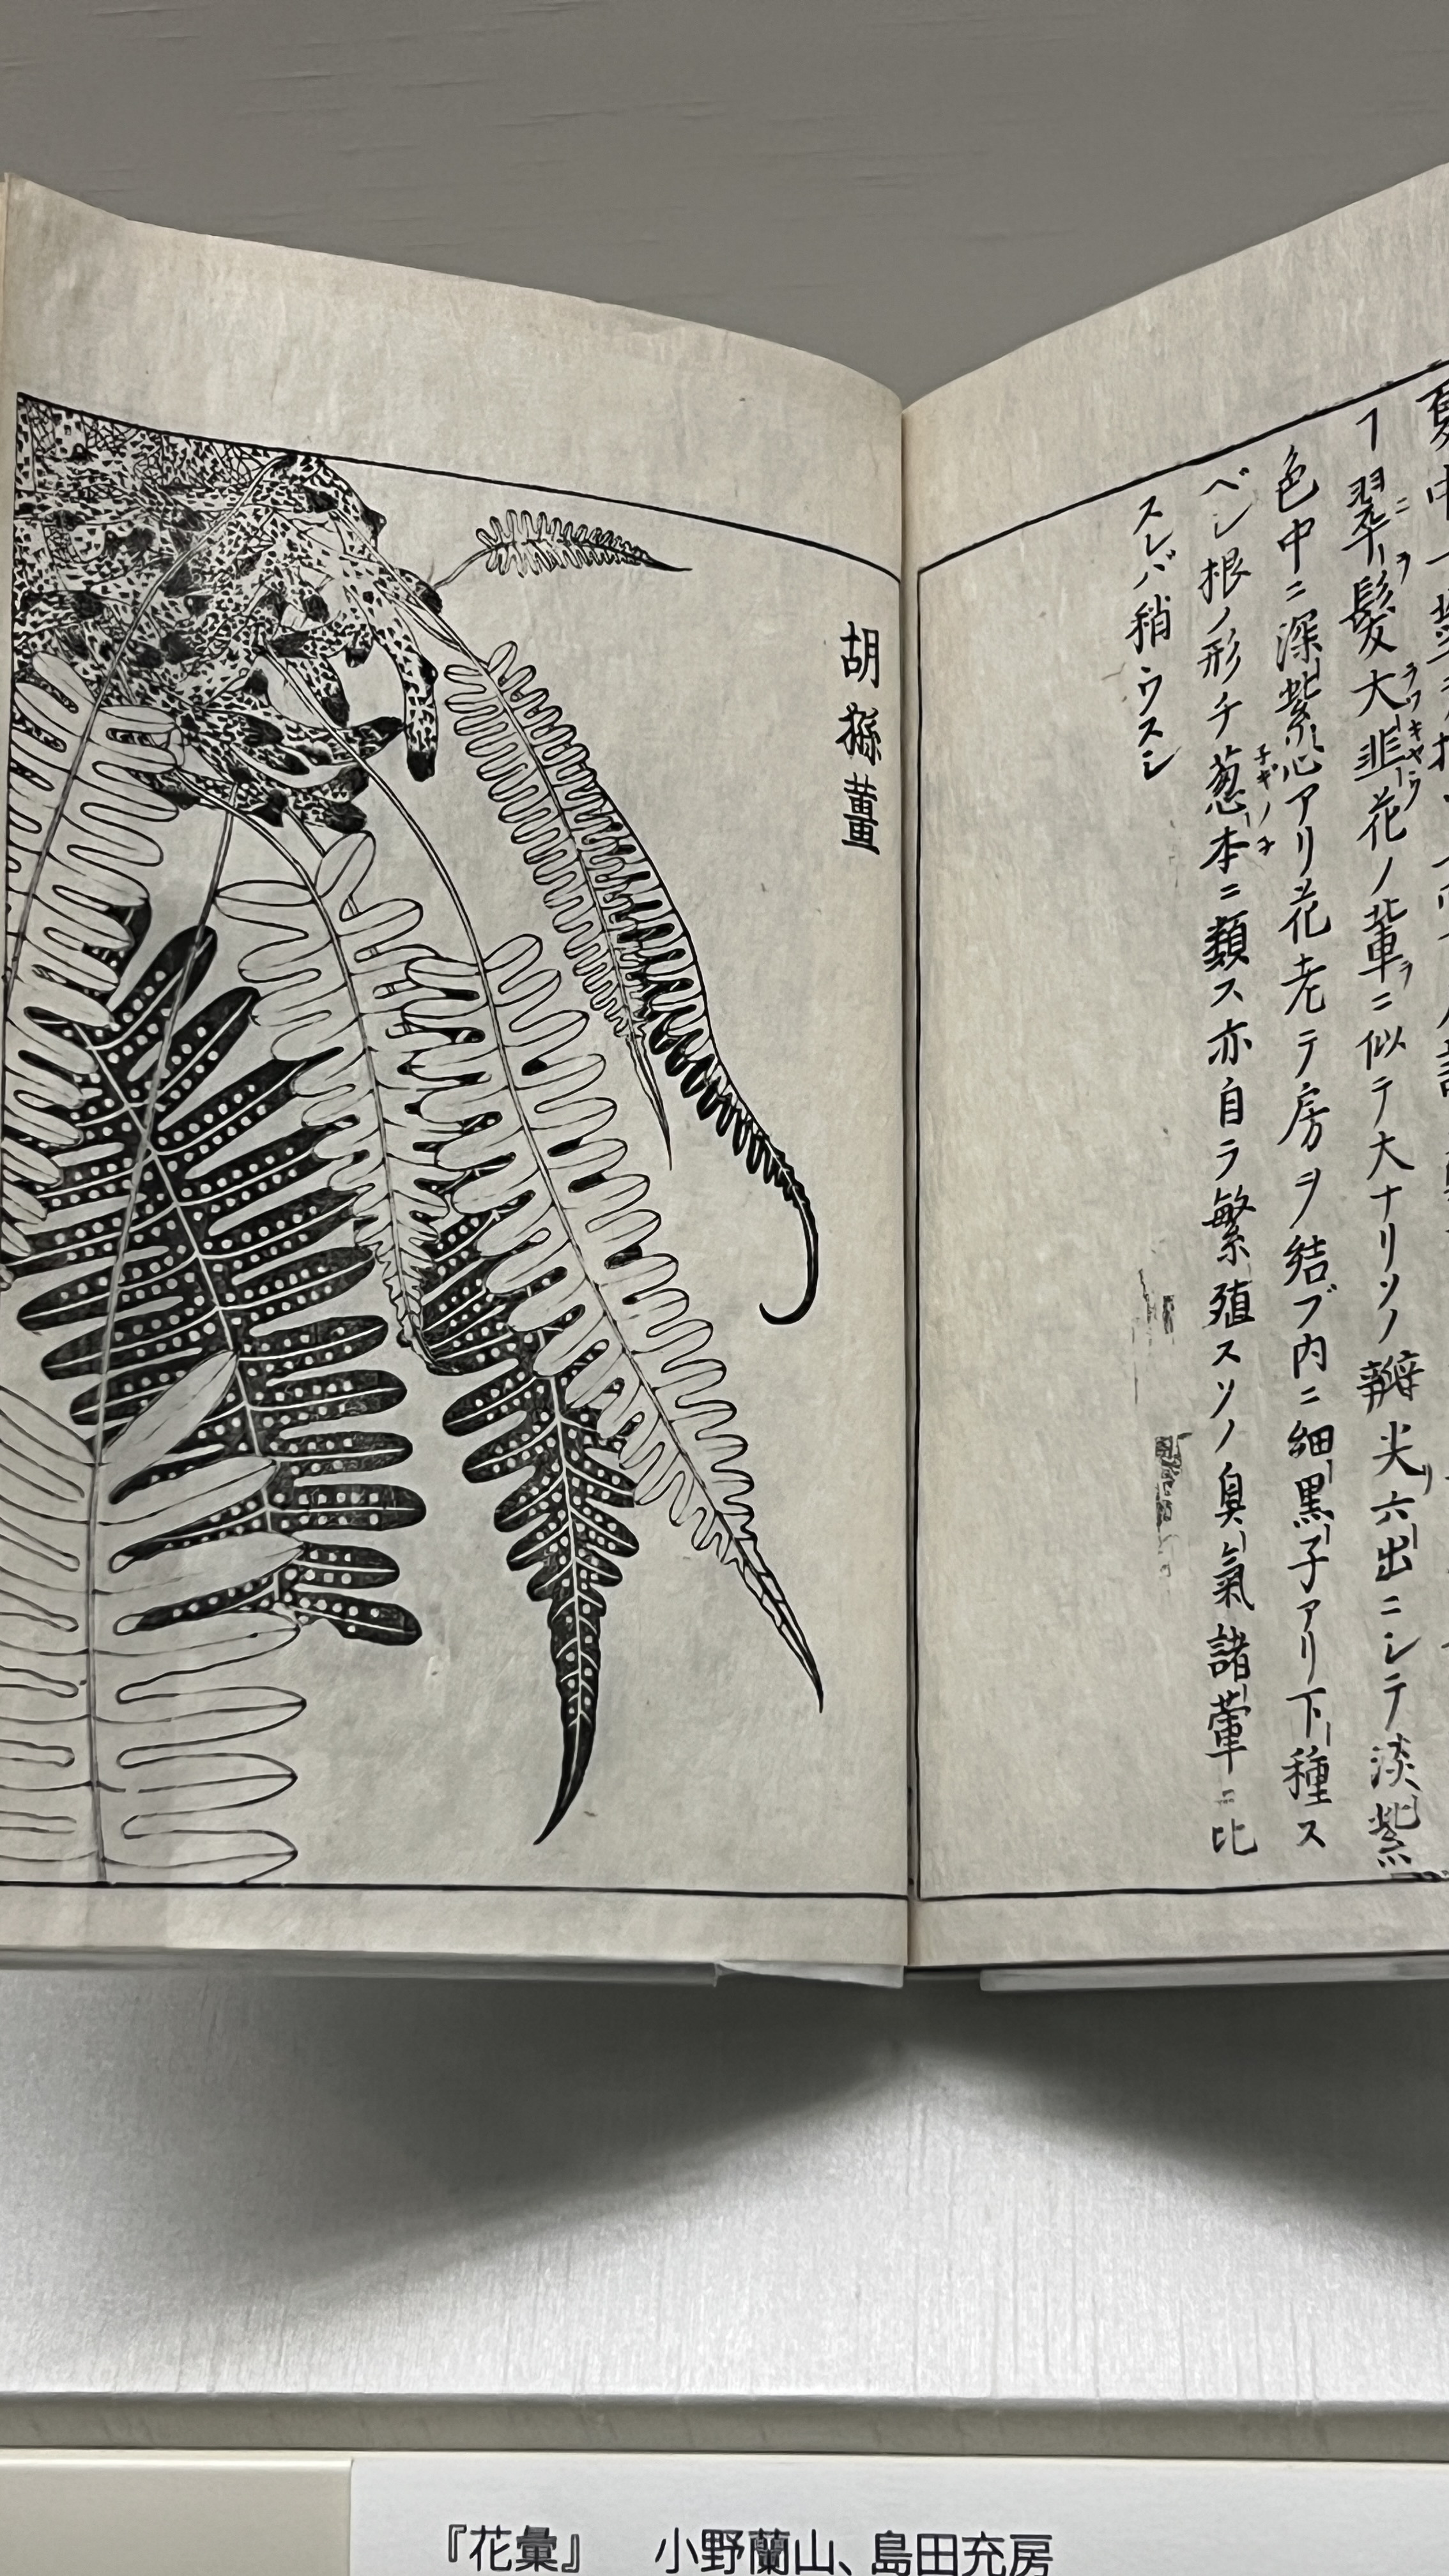 翠髮大韮花ノ輩ニ似テ大ナリソノ瓣尖六出ニシテ淡紫
色中ニ深紫心アリ花老テ房ヲ結ブ内ニ細黒子アリ下種ス
ベシ根ノ形チ葱本ニ類ス亦自ラ繁殖スソノ臭氣諸葷ニ比
スレバ稍ウスシ
胡孫薑
『花彙』 小野蘭山、島田充房